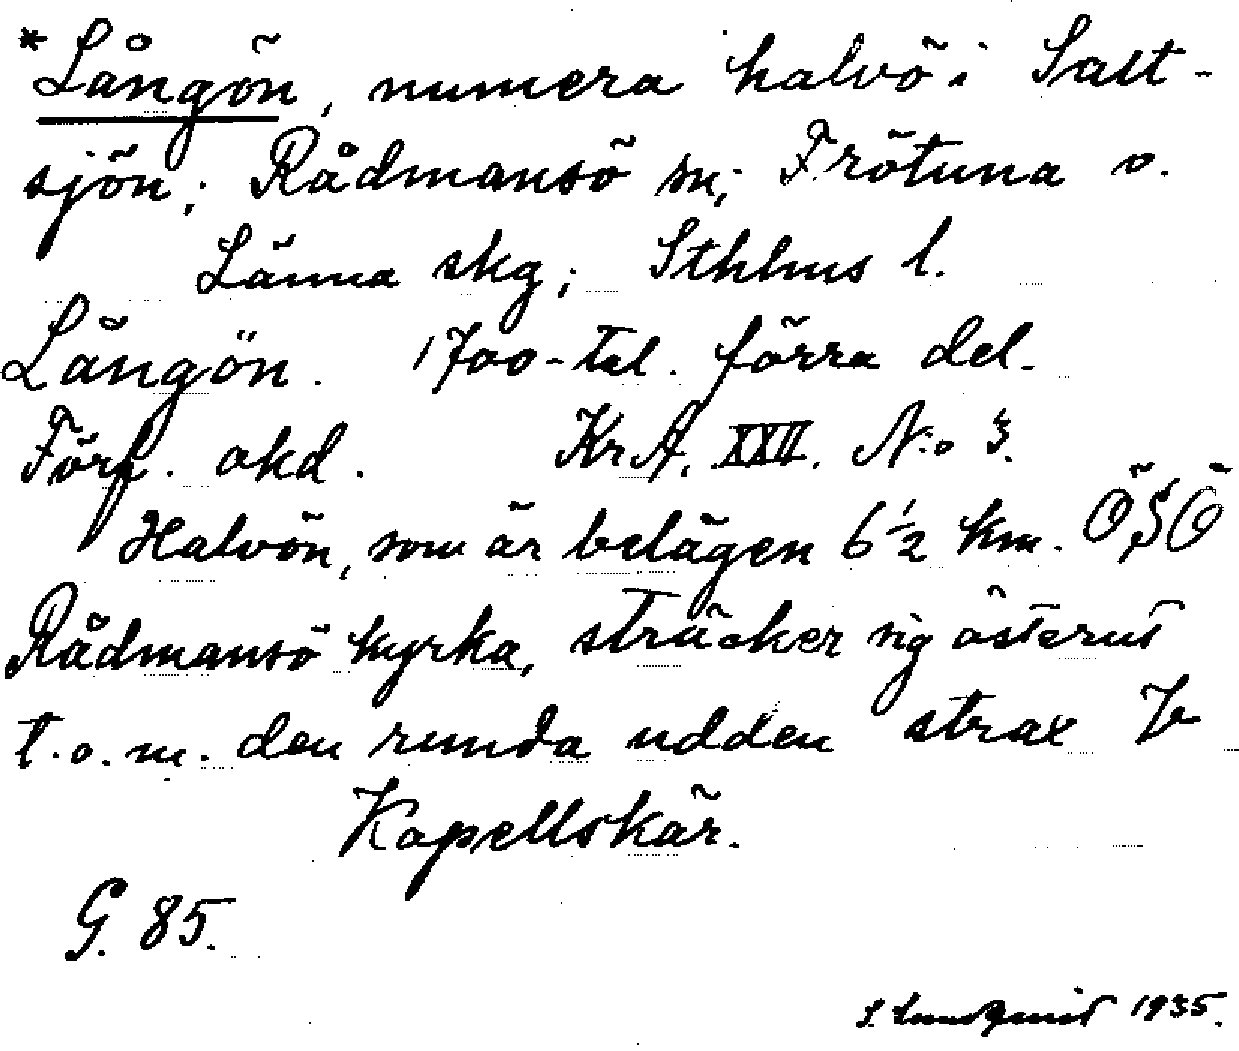 *Långön, numera halvö i Salt-
sjön; Rådmansö sn; Frötuna o.
Länna skg; Sthlms l.
Långön. 1700-tal. förra del.
Förf. okd. KrA. XXII. N:o 3.
Halvön, som är belägen 6 1/2 km. ÖSÖ
Rådmansö kyrka, sträcker sig österut
t.o.m. den runda udden strax V
Kapellskär.
G. 85.
S. Lundquist 1935.